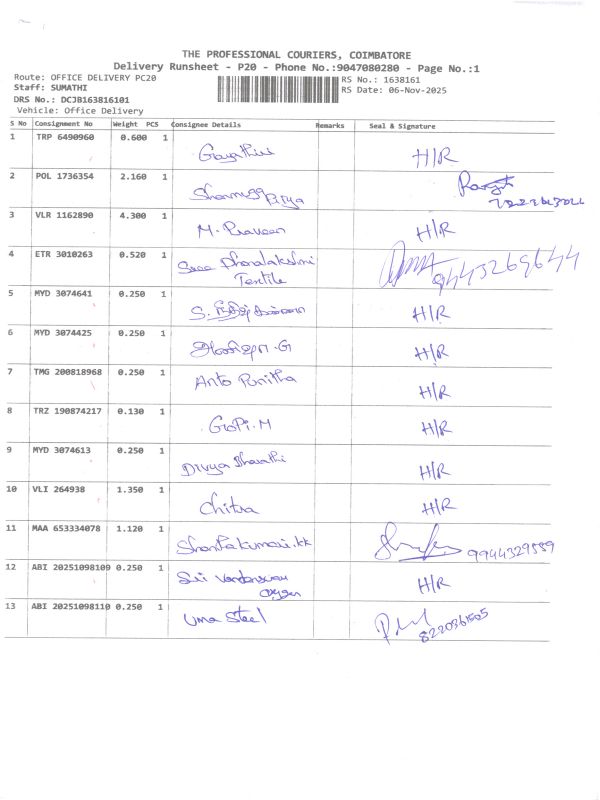 THE PROFESSIONAL COURIERS, COIMBATORE
Delivery Runsheet - P20 - Phone No.:9047080280 - Page No.:1
Route: OFFICE DELIVERY PC20
RS No.: 1638161
Staff: SUMATHI
RS Date: 06-Nov-2025
DRS No.: DCJB163816101
Vehicle: Office Delivery
S No Consignment No Weight PCS Consignee Details Remarks Seal & Signature
1 TRP 6490960 0.600 1 Gayathini H/R
2 POL 1736354 2.160 1 Shanmugapriya
3 VLR 1162890 4.300 1 M. Praveen H/R
4 ETR 3010263 0.520 1 Sree Dhanalakshmi 9443269644
Textile
5 MYD 3074641 0.250 1 S. H/R
6 MYD 3074425 0.250 1 H/R
7 TMG 200818968 0.250 1 Anto Punitha H/R
8 TRZ 190874217 0.130 1 GoPi. M H/R
9 MYD 3074613 0.250 1 Divya Bharathi H/R
10 VLI 264938 1.350 1 Chitra H/R
11 MAA 653334078 1.120 1 Shantakumari.kk 9944329559
12 ABI 20251098109 0.250 1 Sri H/R
Oxygen
13 ABI 20251098110 0.250 1 Uma Steel 8220361505